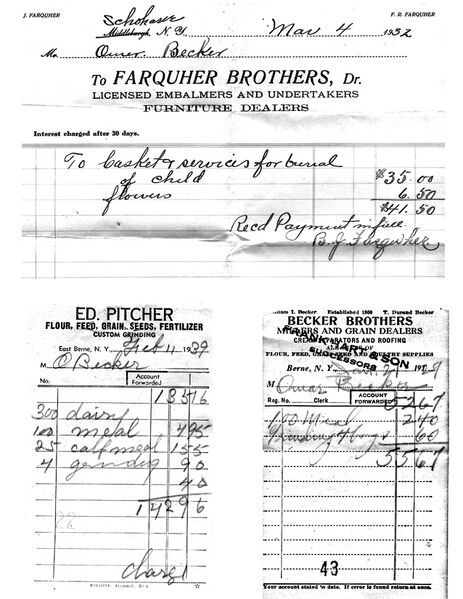 J. FARQUHER
F. R. FARQUHER
Schoharie
Middleburgh, N. Y. Mar 4 1932
Mr. Omer Becker
To FARQUHER BROTHERS, Dr.
LICENSED EMBALMERS AND UNDERTAKERS
FURNITURE DEALERS
Interest charged after 30 days.
To Casket & services for burial
of child $35.00
flowers 6.50
$41.50
Recd Payment in full
B. J. Farquher
ED. PITCHER
FLOUR, FEED, GRAIN, SEEDS, FERTILIZER
CUSTOM GRINDING
East Berne, N. Y. Feb 4 1939
M O Becker
No. Account Forwarded
13516
300 dairy
100 meal 495
25 calf meal 155
4 grinding 90
40
14296
Charge
William I. Becker Established 1866 T. Durand Becker
BECKER BROTHERS
MILLERS AND GRAIN DEALERS
FRANK HART & SON
SUCCESSORS
FLOUR, FEED, SEED AND POULTRY SUPPLIES
Berne, N. Y.
M Omar Becker
Reg. No. Clerk ACCOUNT FORWARDED 5267
100 Meal 240
Grinding 4 bags 60
5567
43
Your account stated to date. If error is found return at once.